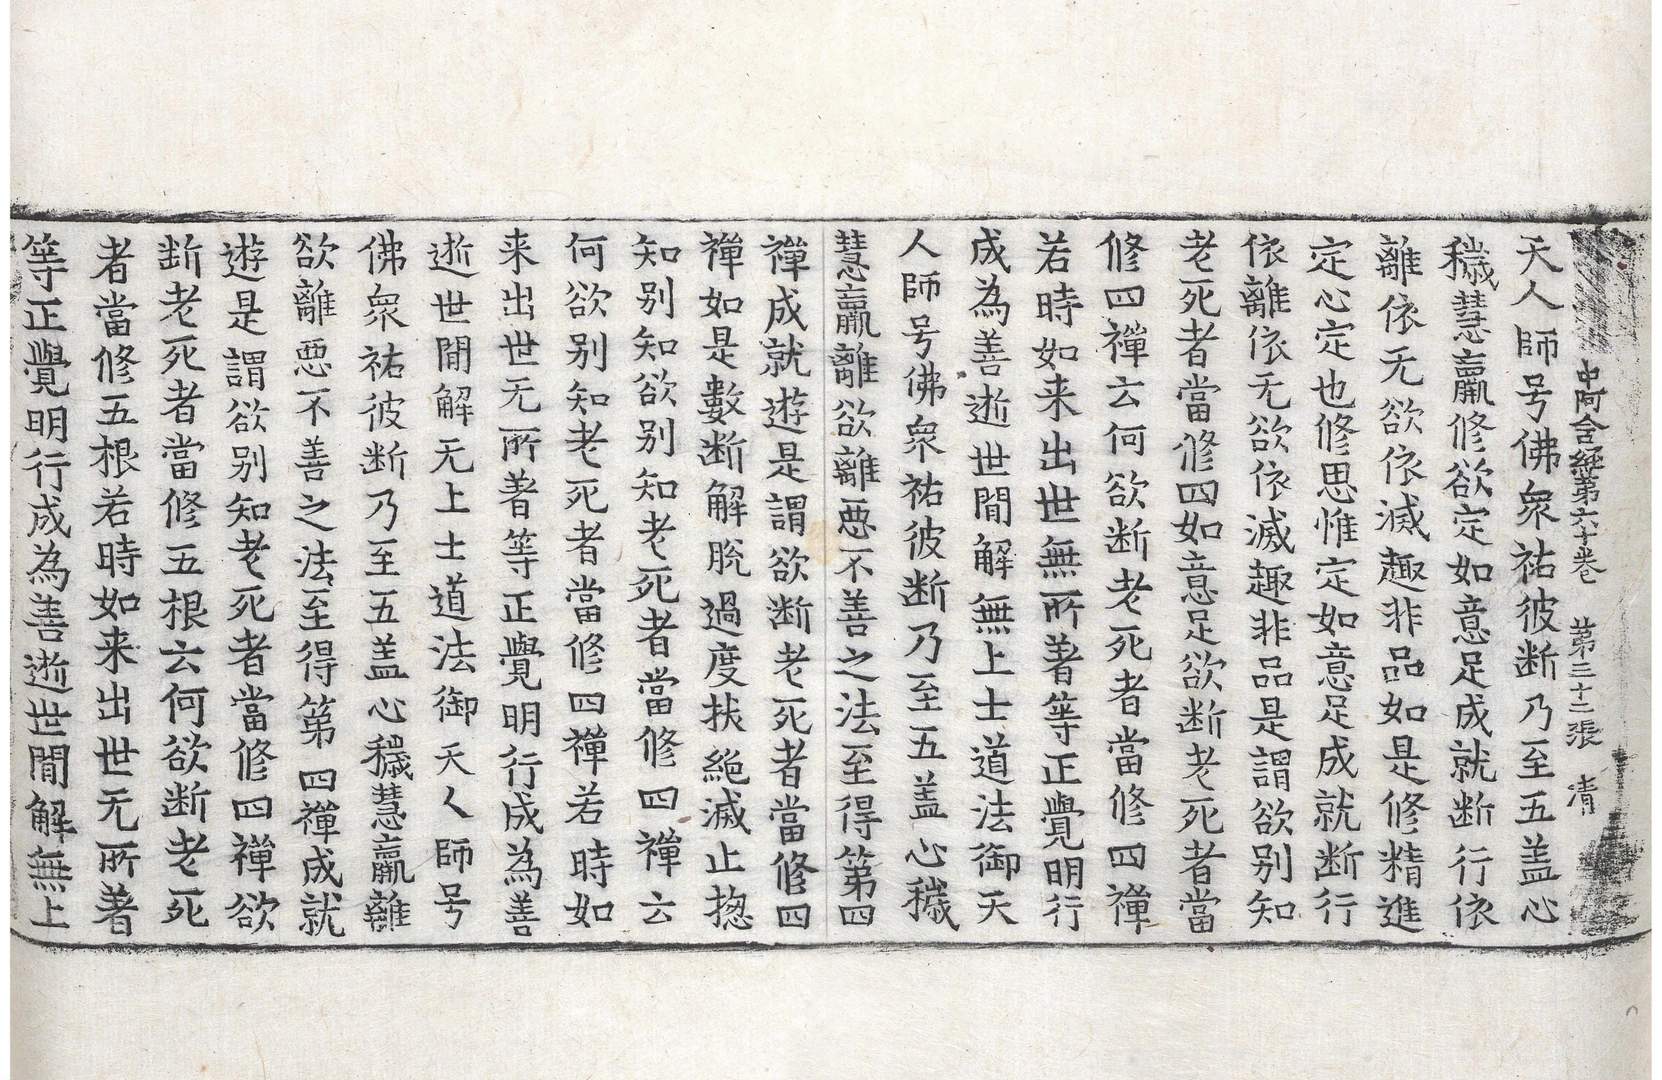 中阿含經第六十卷 第三十二張 清
天人師号佛衆祐彼断乃至五盖心
穢慧羸修欲定如意足成就断行依
離依无欲依滅趣非品如是修精進
定心定也修思惟定如意足成就断行
依離依无欲依滅趣非品是謂欲别知
老死者當修四如意足欲断老死者當
修四禪云何欲断老死者當修四禪
若時如来出世無所著等正覺明行
成為善逝世閒解無上士道法御天
人師号佛衆祐彼断乃至五盖心穢
慧羸離欲離惡不善之法至得第四
禪成就遊是謂欲断老死者當修四
禪如是數断解脫過度扷絶滅止揔
知别知欲别知老死者當修四禪云
何欲别知老死者當修四禪若時如
来出世无所著等正覺明行成為善
逝世閒解无上士道法御天人師号
佛衆祐彼断乃至五盖心穢慧羸離
欲離惡不善之法至得第四禪成就
遊是謂欲别知老死者當修四禪欲
断老死者當修五根云何欲断老死
者當修五根若時如来出世无所著
等正覺明行成為善逝世閒解無上